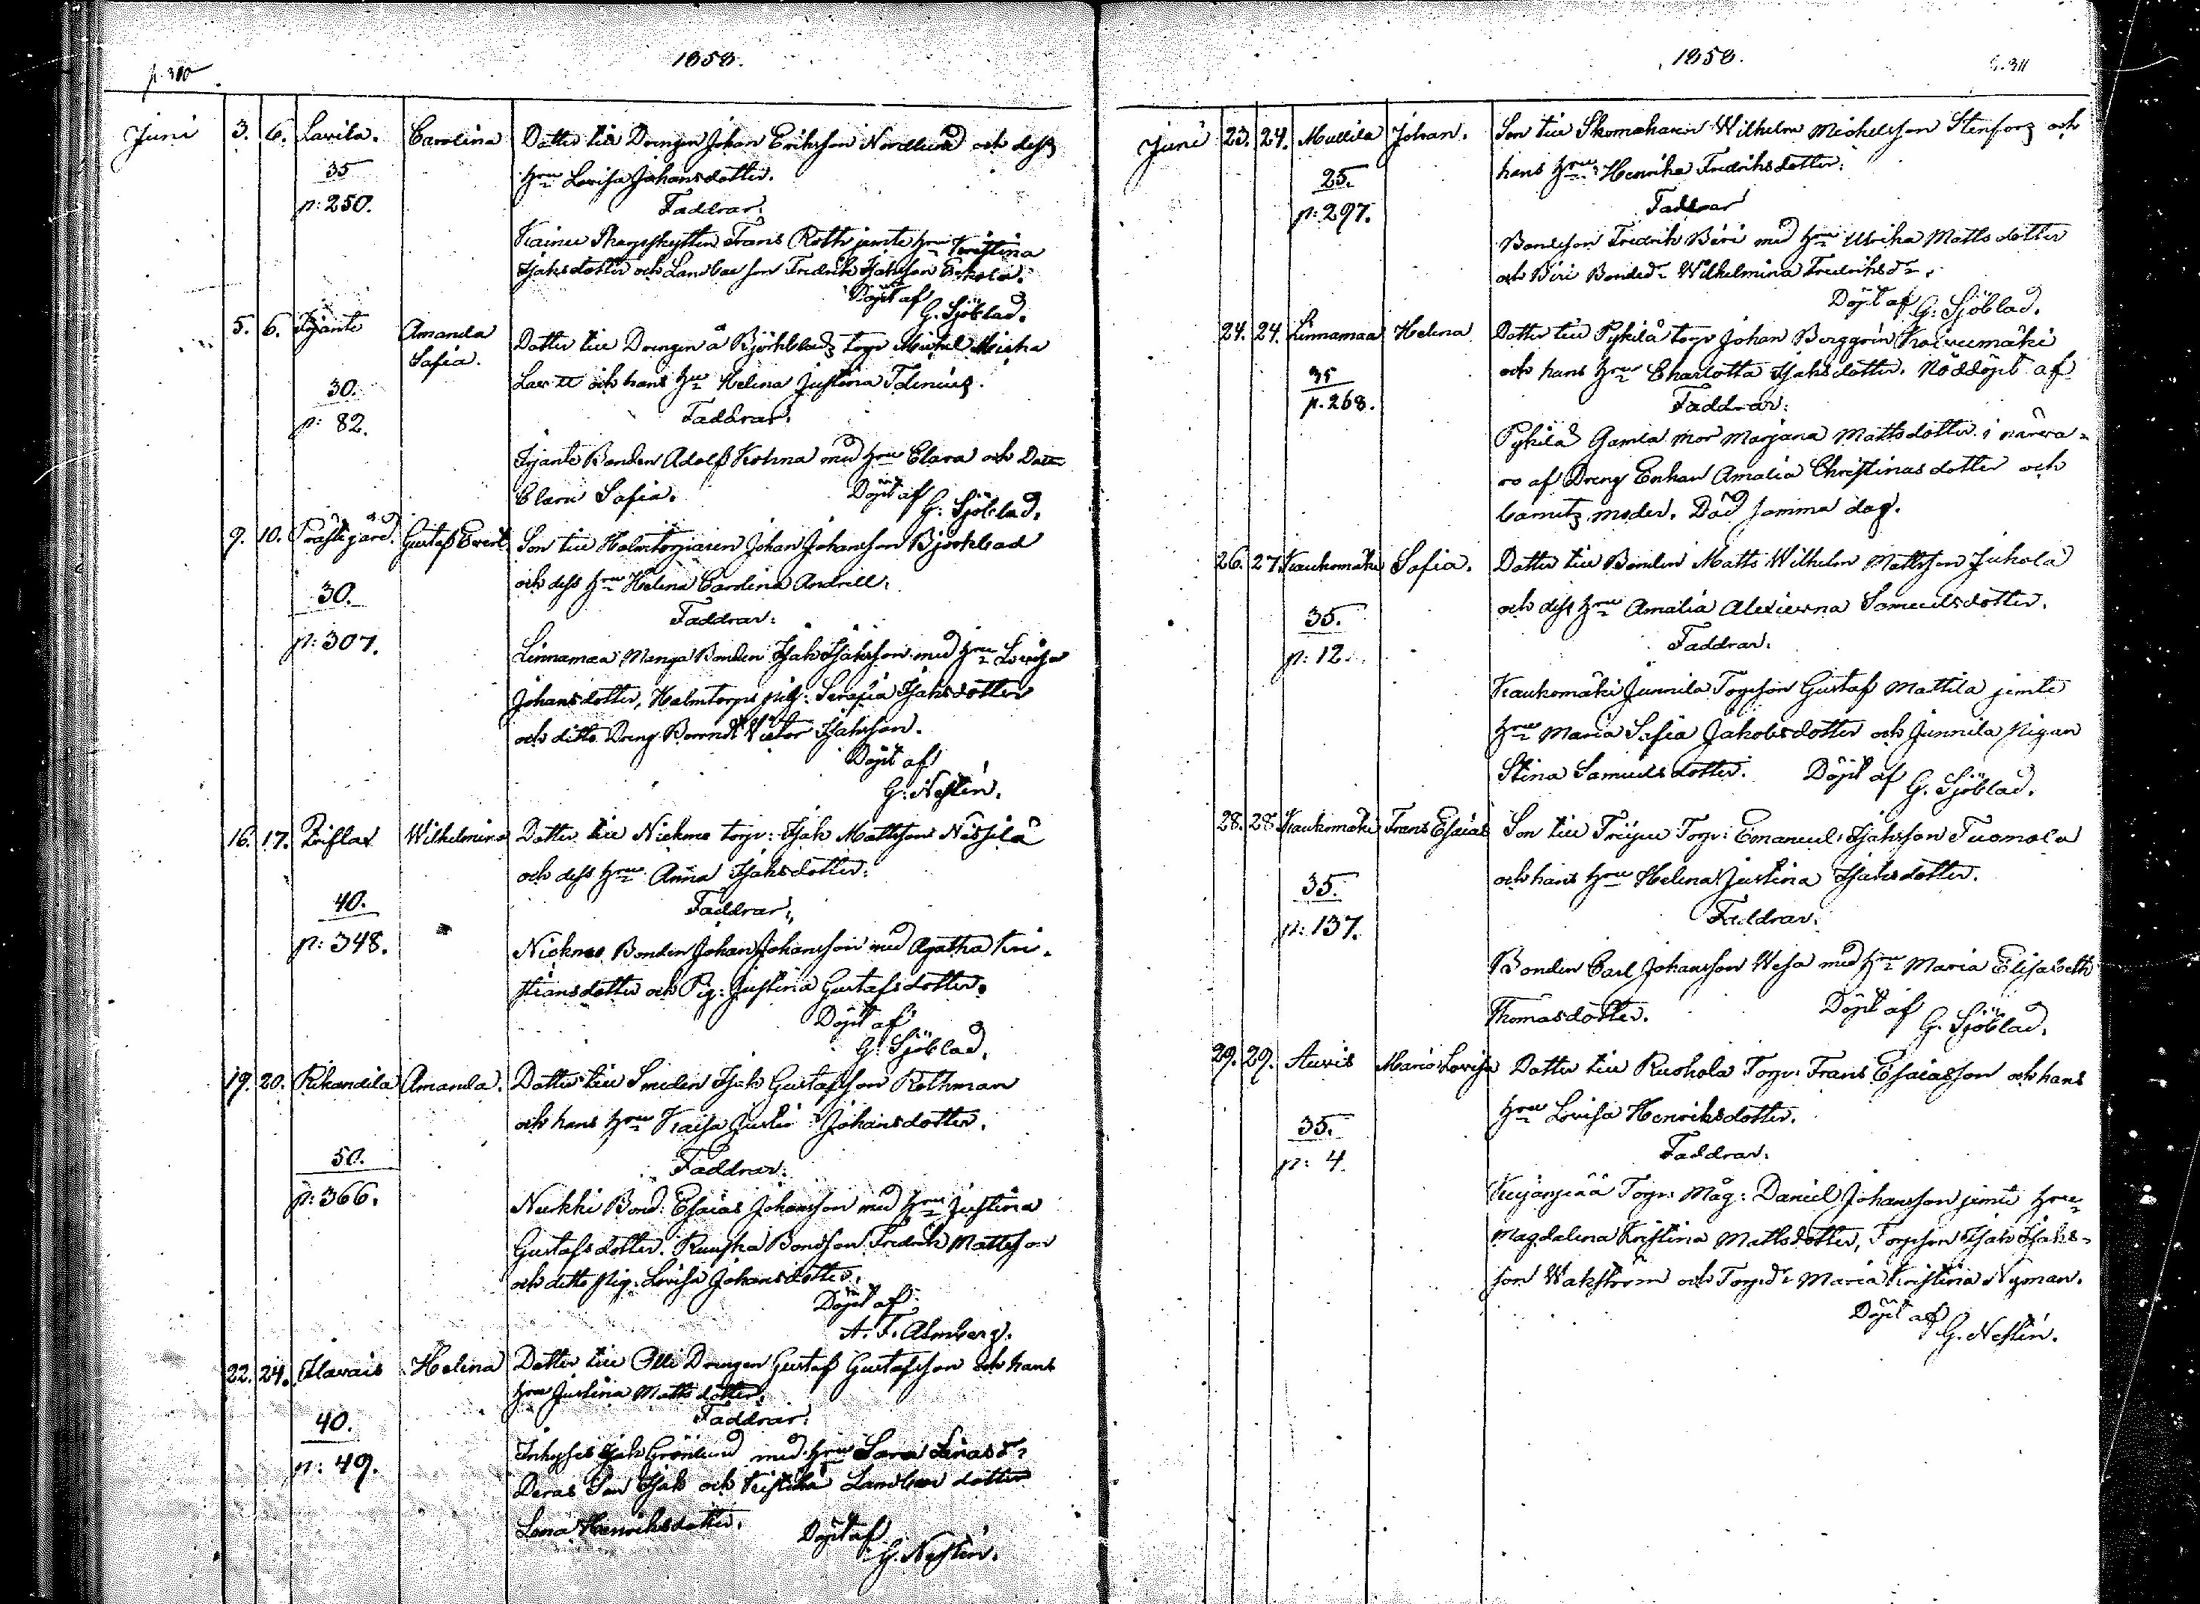 p. 310
1858.
Juni 3. 6. Lavila. Carolina Dotter till Drengen Johan Eriksson Nordlund och dess
35 hru Lovisa Johansdotter.
p: 250. Faddrar:
Kainu Skarpskytten Frans Roth jemte hru Kristina
Isaksdotter och Landboe son Fredrik Isaksson Eskola.
Döpt af
G. Sjöblad.
5. 6. Tjänte Amanda Dotter till Drengen å Björkblads torp Michel Micha
Safia. och hans hru Helena Justina
30. Faddrar:
p: 82.
Tjänte Bonden Adolf Krohna med hru Clara och Dotter
Clara Safia. Döpt af
G. Sjöblad.
9. 10. Prästegård. Gustaf Evert Son till Holmtorparen Johan Johansson Björkblad
och dess hru Helena Carolina Andrill.
30. Faddrar:
p: 307. Linnamaa Manga Bonden Isak Isaksson med hru Lovisa
Johansdotter, Holmtorps pig: Serafia Isaksdotter
och ditto Dreng Berndt Victor Isaksson.
Döpt af
G. Neslin.
16. 17. Wilhelmina Dotter till Nickmo torpr: Isak Mattsson Nässilä
och dess hru Anna Isaksdotter.
40. Faddrar:
p: 348. Nickmo Bonden Johan Johansson med Agatha Kri-
stiansdotter och Pig: Justina Gustafsdotter.
Döpt af
G. Sjöblad.
19. 20. Pikandila Amanda. Dotter till Smeden Isak Gustafsson Rothman
och hans hru Kaisa Johansdotter.
50. Faddrar:
p: 366. Nurkki Bond: Esaias Johansson med hru Justina
Gustafsdotter. Ruuska Bondson Fredrik Mattsson
och ditto pig. Lovisa Johansdotter.
Döpt af
A. F. Almberg.
22. 24. Helena Dotter till Olli Drengen Gustaf Gustafsson och hans
hru Justina Mattsdotter.
40. Faddrar:
p: 49. Isak Grönlund med hru Sara
Deras Son Isak och Landboe dotter
Lena Henriksdotter. Döpt af
G. Neslin.
1858.
p. 311
Juni 23. 24. Mullila Johan. Son till Skomakaren Wilhelm Michelsson Stenfors och
25. hans hru Henrika Fredriksdotter.
p: 297. Faddrar
Bondeson Fredrik Biri med hru Ulrika Mattsdotter
och Biri Bonded:r Wilhelmina Fredriksd:r.
Döpt af G. Sjöblad.
24. 24. Linnamaa Helena Dotter till Pykilä torpr Johan Berggrén Koivumäki
35 och hans hru Charlotta Isaksdotter. Nöddöpt af
p. 268. Faddrar:
Pykilä Gamla mor Marjana Mattsdotter i närva-
ro af Dreng Enkan Amalia Christinasdotter och
barnets moder. Död samma dag.
26. 27. Kaukomäki Sofia. Dotter till Bonden Matts Wilhelm Mattsson Juhola
och dess hru Amalia Alexievna Samuelsdotter.
35. Faddrar.
p: 12.
Kaukomäki Junnila Torpson Gustaf Mattila jemte
hru Maria Sofia Jakobsdotter och Junnila Pigan
Stina Samuelsdotter. Döpt af G. Sjöblad.
28. 28. Kaukomäki Frans Esaias Son till Torpr: Emanuel Isaksson Tuomola
och hans hru Helena Justina Isaksdotter.
35. Faddrar.
p: 137.
Bonden Carl Johansson Wesa med hru Maria Elisabeth
Thomasdotter. Döpt af
G. Sjöblad.
29. 29. Auvis Maria Lovisa Dotter till Ruohola Torpr. Frans Esaiasson och hans
hru Lovisa Henriksdotter.
35. Faddrar.
p: 4.
Kujanpää Torpr: Måg: Daniel Johansson jemte hru
Magdalena Kristina Mattsdotter, Torpson Isak Isaks-
son Wakström och Torp.d:r Maria Kristina Nyman.
Döpt af
G. Neslin.